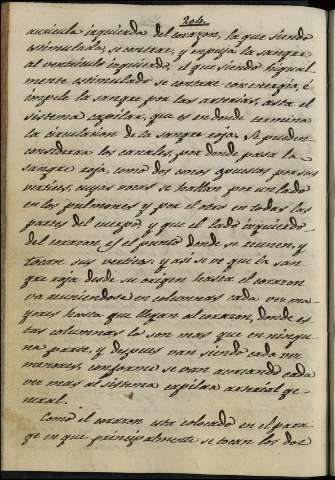 204.
auricula izquierda del corazon, la que siendo
estimulada, se contrae, y empuja la sangre
al ventriculo izquierdo, el que siendo higual-
mente estimulado se contrae con energia, é
impele la sangre por las arterias, asta el
sistema capilar, que es en donde termina
la circulacion de la sangre roja. Se pueden
considerar los canales, por donde pasa la
sangre roja, como dos conos opuestos por sus
vertices, cuyas voses se hallan por un lado
en los pulmones y por el otro en todas las
partes del cuerpo, y que el lado izquierdo
del corazon es el punto donde se reunen, y
tocan sus vertices; y asi se ve que la san-
gre roja desde su origen hasta el corazon
va reuniendose en columnas cada vez ma-
yores hasta que llegan al corazon, donde es-
tas columnas lo son mas que en ningu-
na parte, y despues van siendo cada vez
menores, conforme se van acercando cada
vez mas al sistema capilar arterial ge-
neral.
Como el corazon esta colocado en el para-
ge en que principalmente se tocan los dos